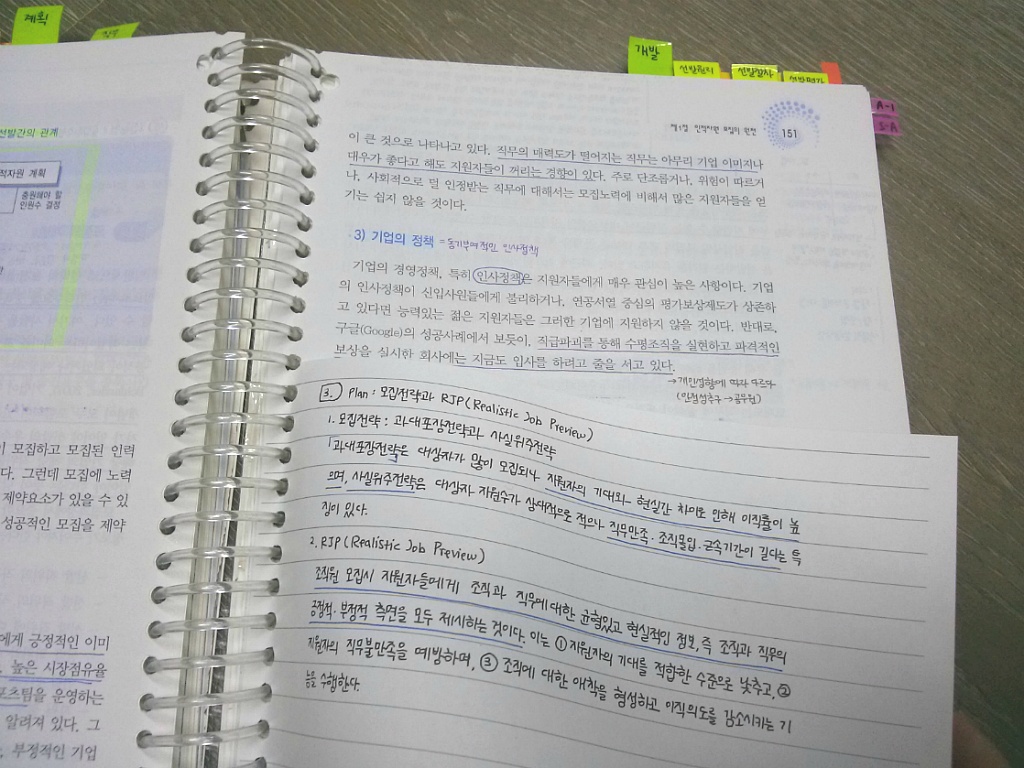 계획
개발
선발원리
선발절차
선발평가
A-1
S-A
선발간의 관계
적자원 계획
충원해야 할
인원수 결정
이 모집하고 모집된 인력
다. 그런데 모집에 노력
제약요소가 있을 수 있
성공적인 모집을 제약
에게 긍정적인 이미
. 높은 시장점유율
포츠팀을 운영하는
알려져 있다. 그
, 부정적인 기업
제4장 인적자원 모집의 원천 151
이 큰 것으로 나타나고 있다. 직무의 매력도가 떨어지는 직무는 아무리 기업 이미지나
대우가 좋다고 해도 지원자들이 꺼리는 경향이 있다. 주로 단조롭거나, 위험이 따르거
나, 사회적으로 덜 인정받는 직무에 대해서는 모집노력에 비해서 많은 지원자들을 얻
기는 쉽지 않을 것이다.
3) 기업의 정책 = 동기부여적인 인사정책
기업의 경영정책, 특히 인사정책은 지원자들에게 매우 관심이 높은 사항이다. 기업
의 인사정책이 신입사원들에게 불리하거나, 연공서열 중심의 평가보상제도가 상존하
고 있다면 능력있는 젊은 지원자들은 그러한 기업에 지원하지 않을 것이다. 반대로,
구글(Google)의 성공사례에서 보듯이, 직급파괴를 통해 수평조직을 실현하고 파격적인
보상을 실시한 회사에는 지금도 입사를 하려고 줄을 서고 있다.
→개인성향에 따라 다르다
(안정성추구 →공무원)
3. Plan : 모집전략과 RJP(Realistic Job Preview)
1. 모집전략 : 과대포장전략과 사실위주전략
과대포장전략은 대상자가 많이 모집되나 지원자의 기대와 현실간 차이로 인해 이직률이 높
으며, 사실위주전략은 대상자 지원수가 상대적으로 적으나 직무만족·조직몰입·근속기간이 길다는 특
징이 있다.
2. RJP(Realistic Job Preview)
조직원 모집시 지원자들에게 조직과 직무에 대한 균형있고 현실적인 정보, 즉 조직과 직무의
긍정적·부정적 측면을 모두 제시하는 것이다. 이는 ① 지원자의 기대를 적합한 수준으로 낮추고, ②
지원자의 직무불만족을 예방하며, ③ 조직에 대한 애착을 형성하고 이직의도를 감소시키는 기
능을 수행한다.